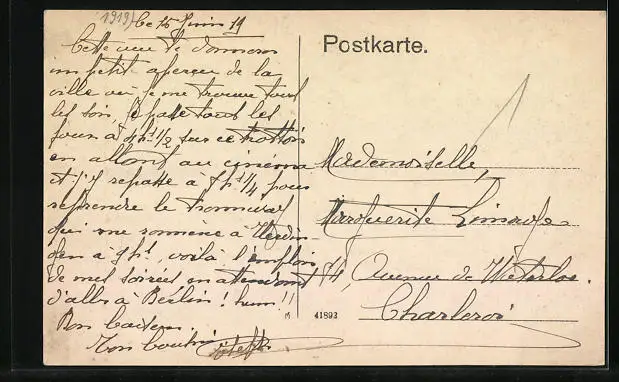 1919)
Le 15 Juin 19
Cette vue te donnera
un petit aperçu de la
ville où je me trouve tous
les soirs, je passe tous les
jours à 4h 1/2 sur ce trottoir
en allant au cinéma
et j'y repasse à 8h 1/4 pour
reprendre le tramway
qui me ramène à
à 9h, voilà l'emploi
de mes soirées en attendant
d'aller à Berlin ! hum !!
Bon baiser
Ton cousin
Postkarte.
Mademoiselle,
Marguerite
74, Avenue de Waterloo.
Charleroi
M 41893